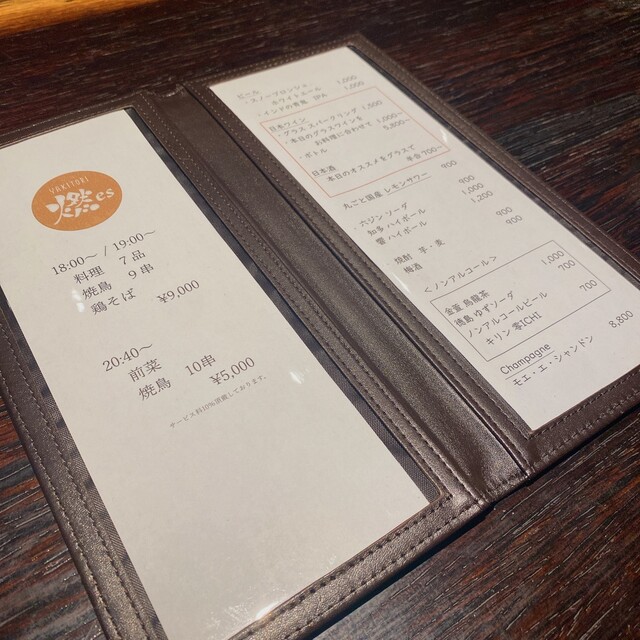 YAKITORI
燃es
18:00〜 / 19:00〜
料理 7品
焼鳥 9串
鶏そば ¥9,000
20:40〜
前菜
焼鳥 10串
¥5,000
サービス料10%頂戴しております。
・スノーブロンシェ 1,000
ホワイトエール
・インドの青鬼 IPA 1,000
日本ワイン
・グラス スパークリング 1,000
・本日のグラスワインを
お料理に合わせて 1,000〜
・ボトル 5,800〜
日本酒
本日のオススメをグラスで
半合 700〜
丸ごと国産 レモンサワー 900
・ジン ソーダ 900
知多 ハイボール 1,000
響 ハイボール 1,200
焼酎 芋・麦 900
梅酒 900
<ノンアルコール>
金萱 烏龍茶 1,000
徳島 ゆずソーダ 700
ノンアルコールビール
キリン 零ICHI 700
Champagne
モエ・エ・シャンドン 8,800